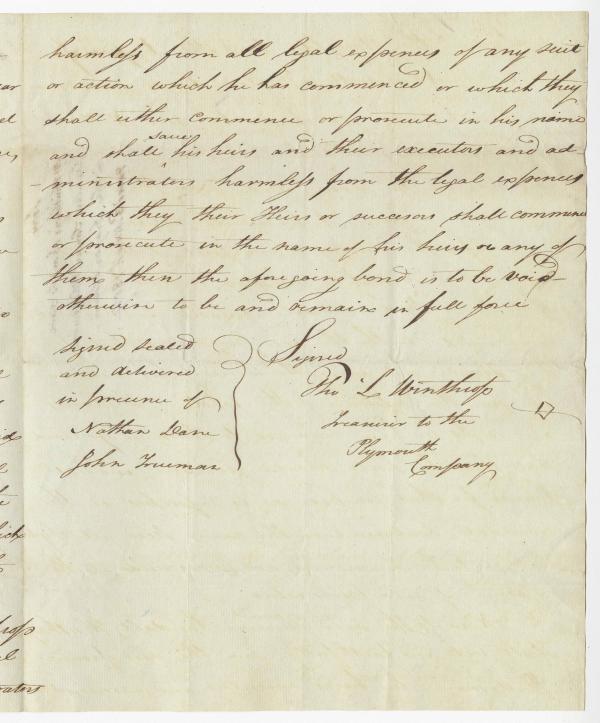 harmless from all legal expences of any suit
or action which he has commenced or which they
shall either commence or prosecute in his name
save
and shall his heirs and their executors and ad-
-ministrators harmless from the legal expences
which they their Heirs or succesors shall commence
or prosecute in the name of his heirs or any of
them then the aforegoing bond is to be void
otherwise to be and remain in full force
signed sealed
and delivered
in presence of
Nathan Dane
John Trueman
Signed
Tho L Winthrop
Treasurer to the
Plymouth
Company